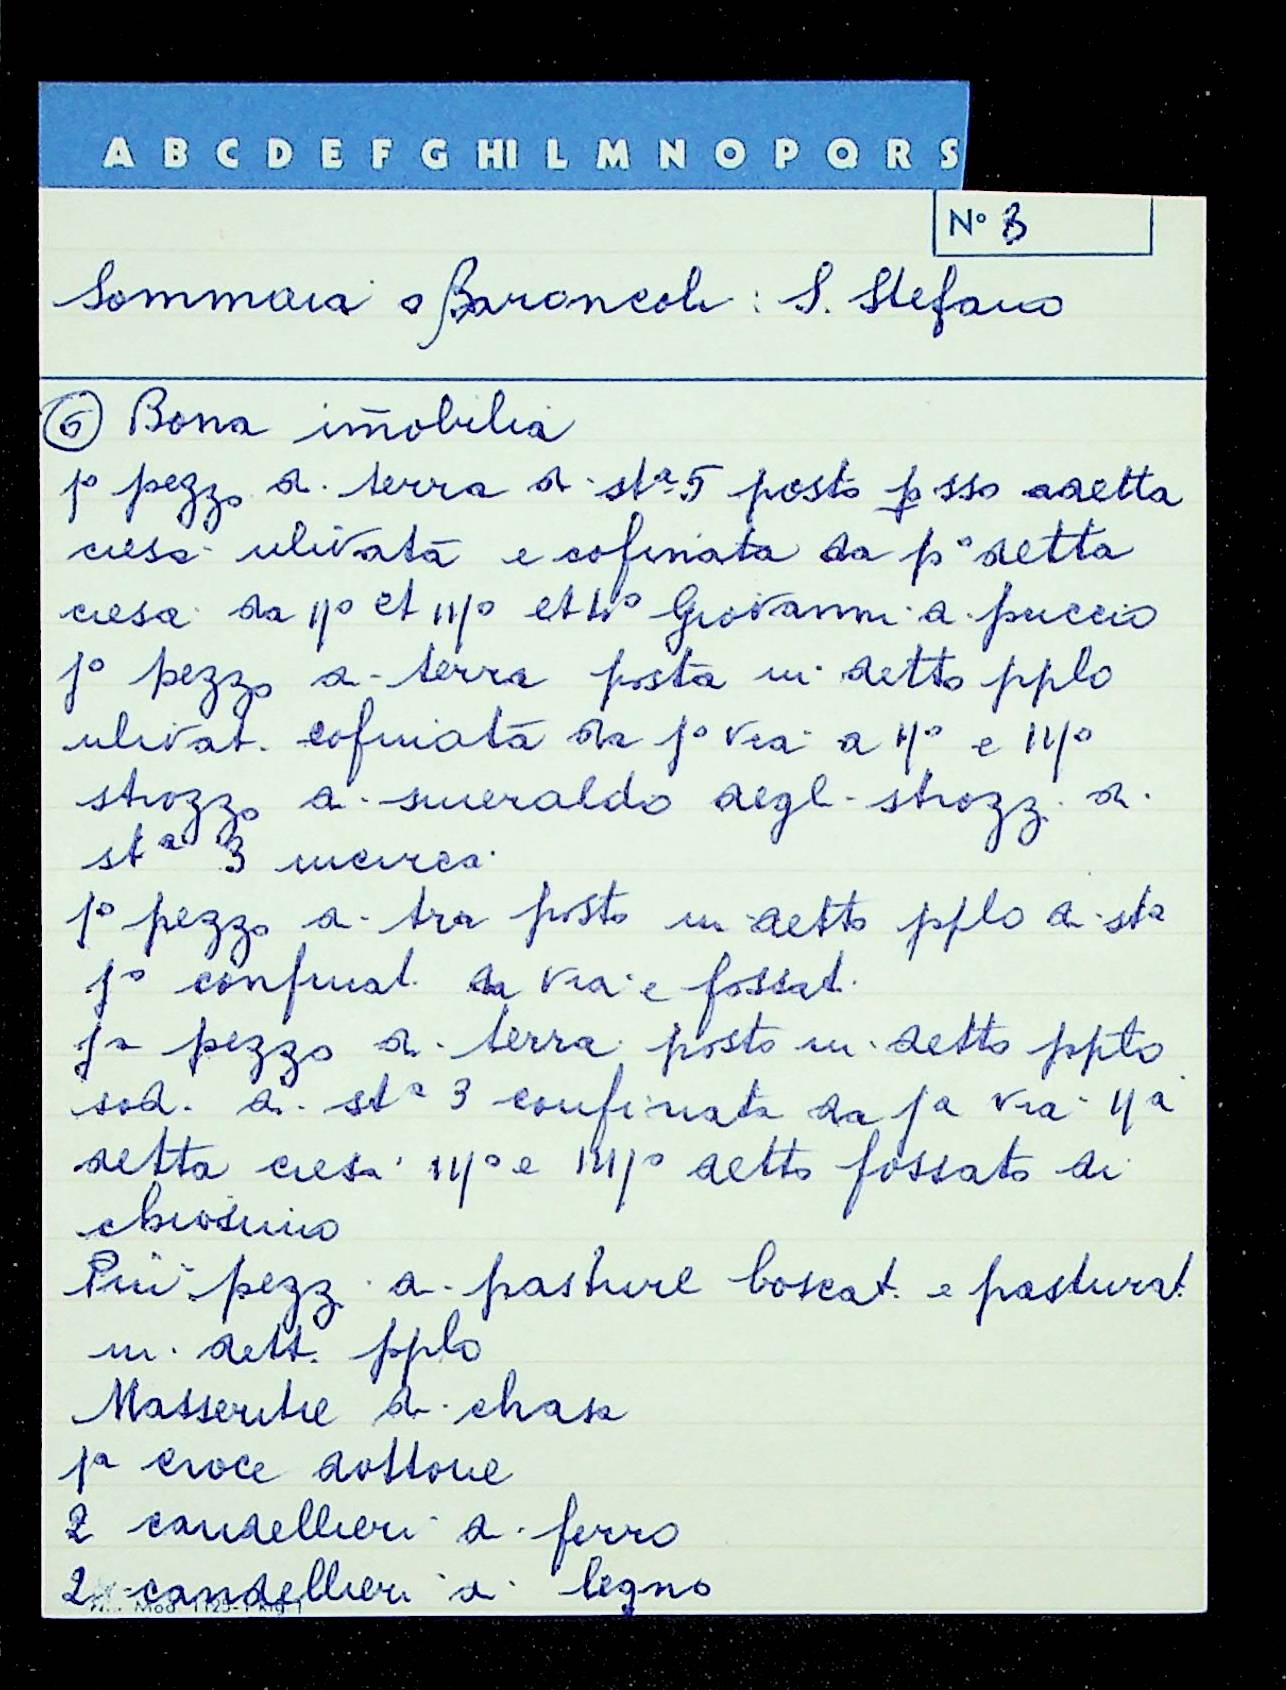 A B C D E F G HI L M N O P Q R S
N° 3
Sommaia o Baroncoli : S. Stefano
6 Bona im̄obilia
j° pezzo di terra di sta 5 posto p̱sso adetta
ciesa ulivatā e cofinata da p° detta
ciesa da ij° et iij° et Giovanni di puccio
j° pezzo di terra posta in detto pplo
ulivat. cofinatā da j° via a ij° e iij°
strozzo di smeraldo degl. strozz. di
sta 3 incirca
j° pezzo di tra posto in detto pplo di sta
j° confinat. da via e fossat.
ja pezzo di terra posto in detto pplo
sod. di sta 3 confinata da ja via ija
detta ciesa iij° e iiij° detto fossato di
chiosino
Più pezz. di pasture boscat. e pasturat.
in dett. pplo
Masseritie di chasa
ja croce dottone
2 candellieri di ferro
2 candellieri di legno